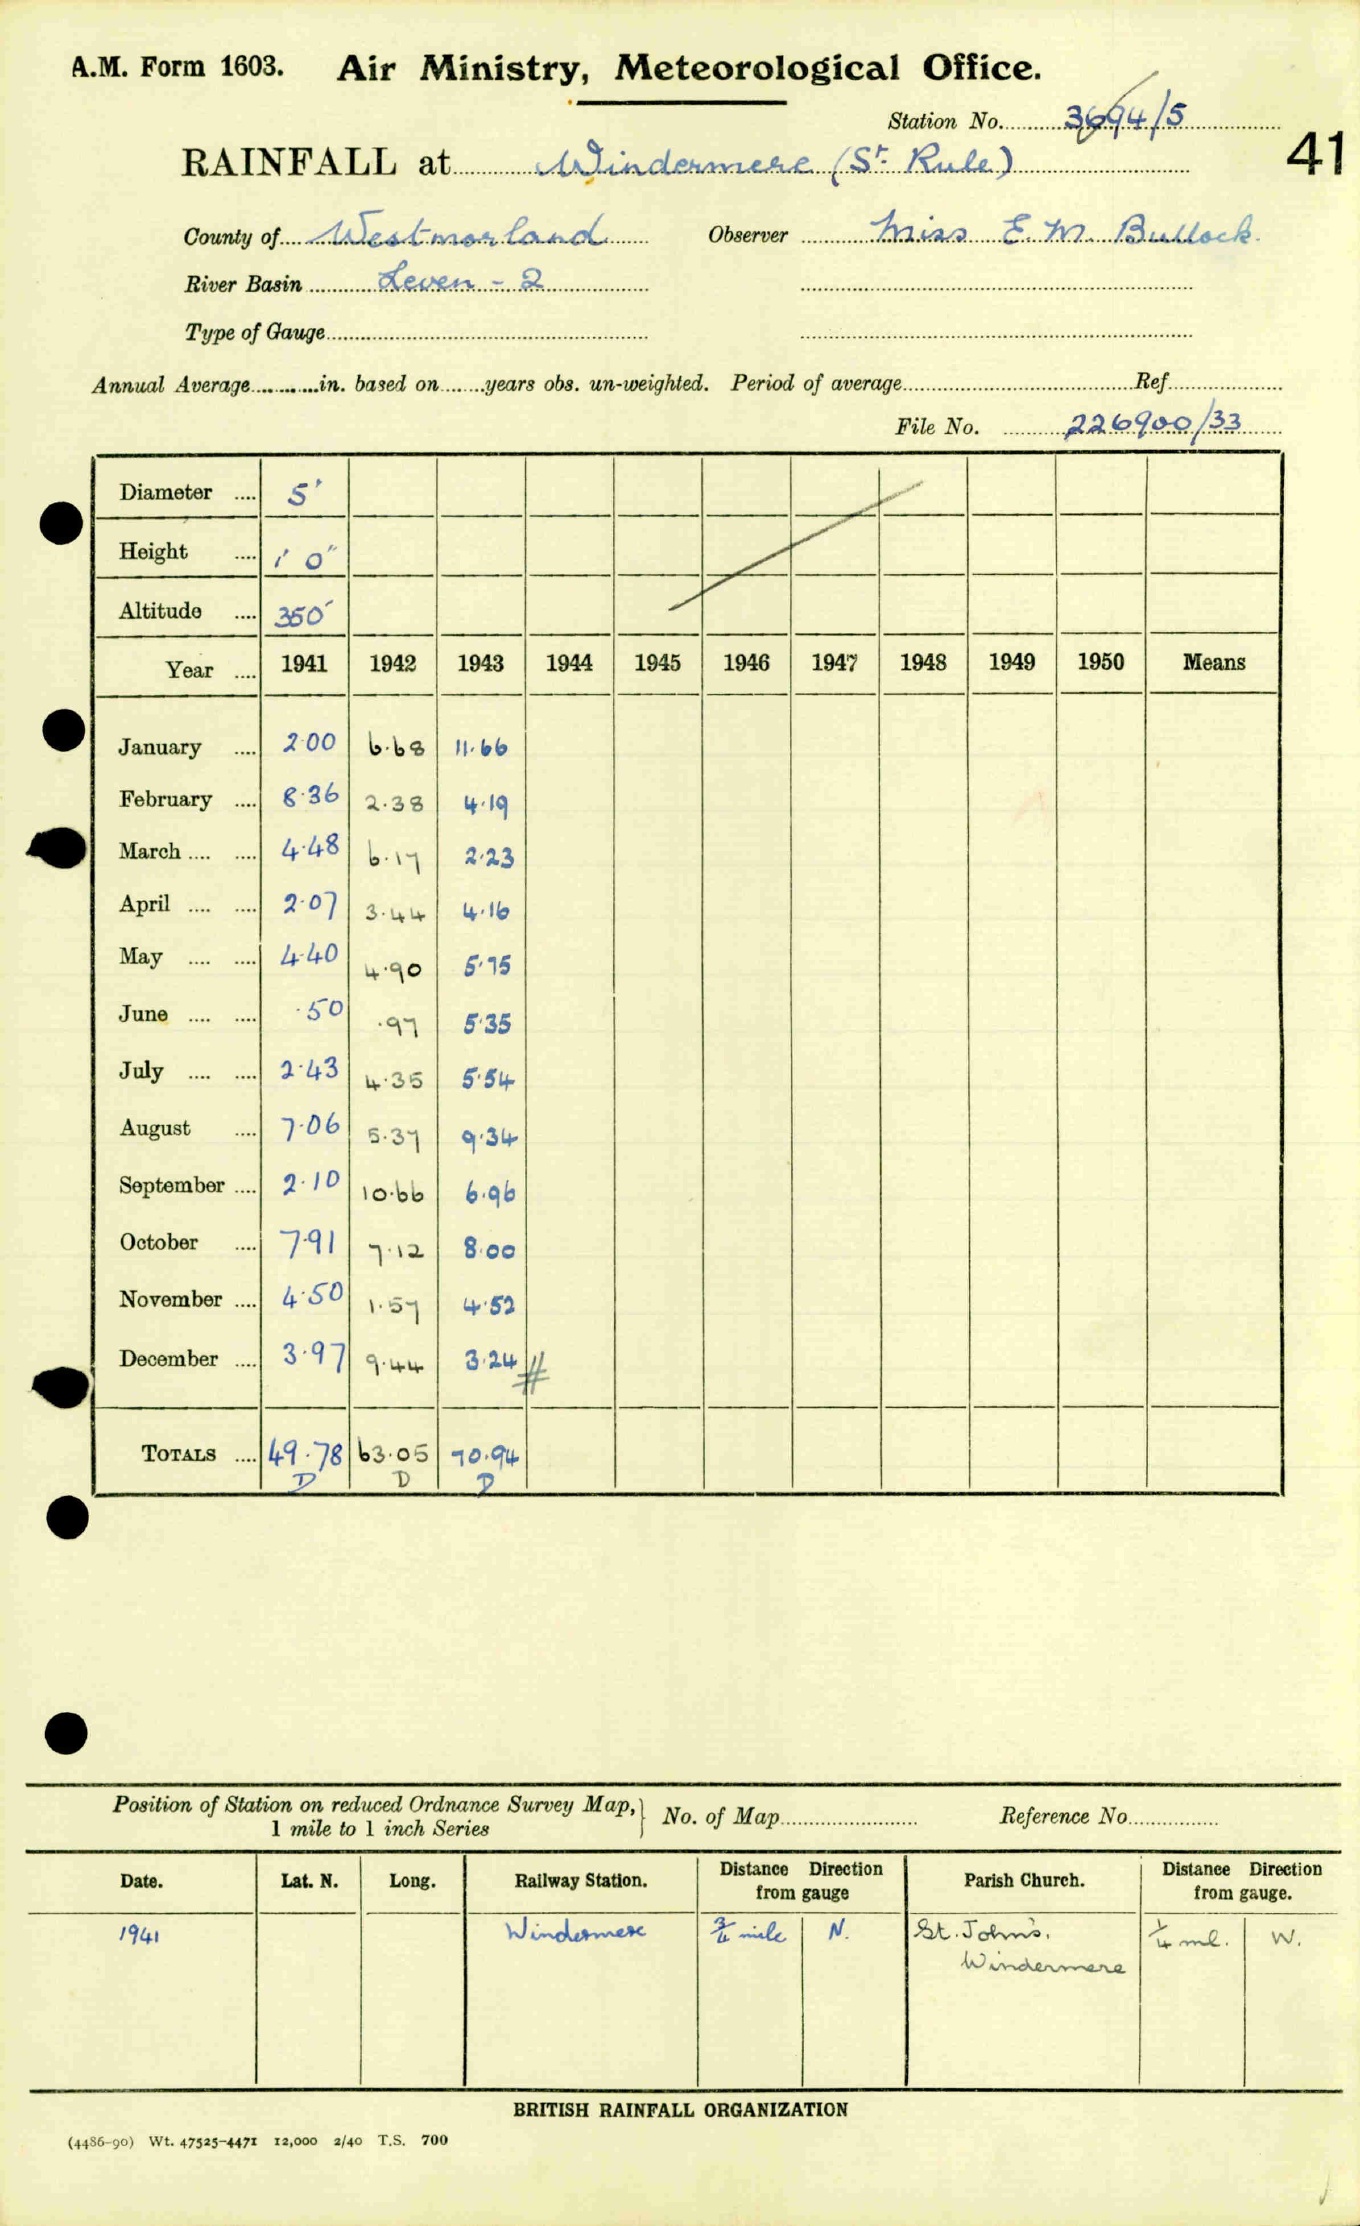 A.M. Form 1603. Air Ministry, Meteorological Office.
Station No. 3694/5
41
RAINFALL at Windermere (St. Rule)
County of Westmorland Observer Miss E. M. Bullock.
River Basin Leven - 2
Type of Gauge
Annual Average in. based on years obs. un-weighted. Period of average Ref
File No. 226900/33
Diameter 5'
Height 1' 0"
Altitude 350'
Year 1941 1942 1943 1944 1945 1946 1947 1948 1949 1950 Means
January 2.00 6.68 11.66
February 8.36 2.38 4.19
March 4.48 6.17 2.23
April 2.07 3.44 4.16
May 4.40 4.90 5.75
June .50 .97 5.35
July 2.43 4.35 5.54
August 7.06 5.37 9.34
September 2.10 10.66 6.96
October 7.91 7.12 8.00
November 4.50 1.57 4.52
December 3.97 9.44 3.24 #
TOTALS 49.78 63.05 70.94
D D D
Position of Station on reduced Ordnance Survey Map, 1 mile to 1 inch Series } No. of Map Reference No.
Date. Lat. N. Long. Railway Station. Distance Direction from gauge Parish Church. Distance Direction from gauge.
1941 Windermere 3/4 mile N. St. John's, 1/4 ml. W.
Windermere
BRITISH RAINFALL ORGANIZATION
(4486-90) Wt. 47525-4471 12,000 2/40 T.S. 700